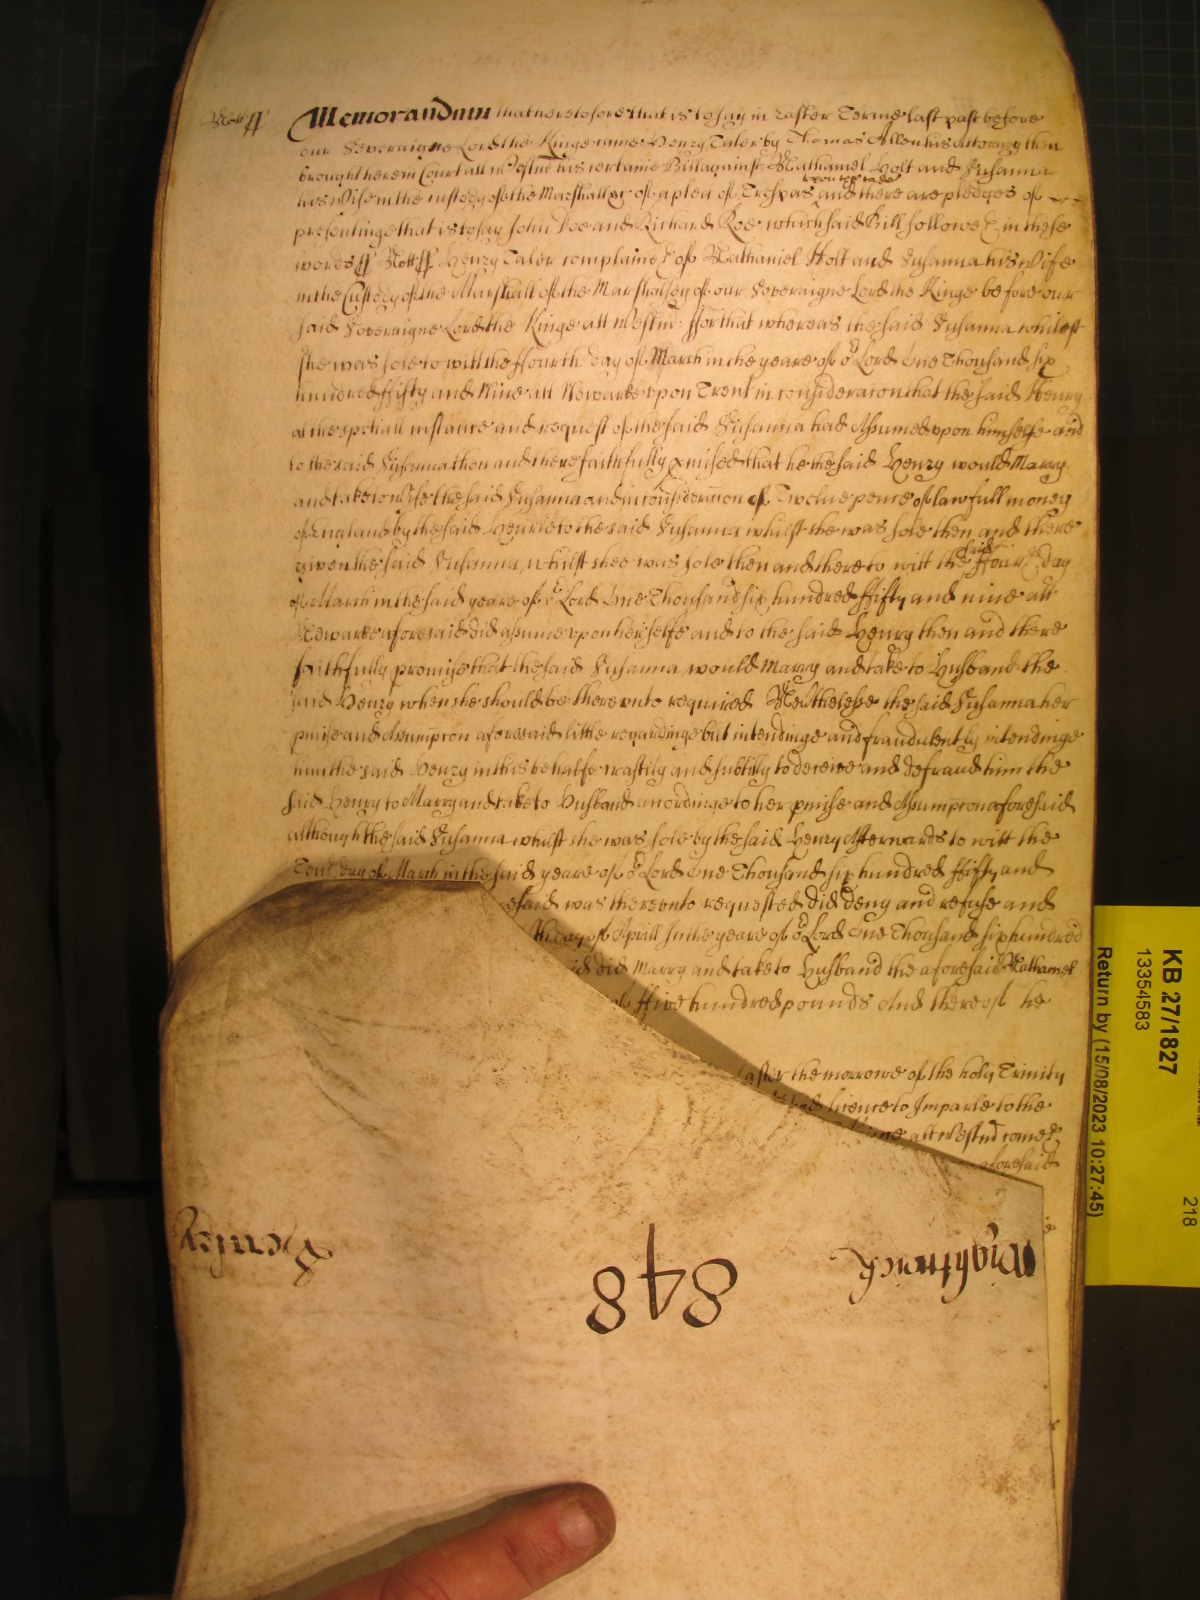 Nott ff Memorandum that heretofore that is to say in Easter Terme last past before
our Soveraigne Lord the Kinge came Henry Taler by Thomas Allen his Attorney then
brought here in Court att Westm his certaine Bill against Nathaniel Holt and Susanna
his Wife in the custody of the Marshall &c of a plea of Trespas upon the case and there are pledges of
prosentinge that is to say John Doe and Richard Roe which said Bill followeth in these
words ff Nott ff Henry Taler complaineth of Nathaniel Holt and Susanna his Wife
in the Custody of the Marshall of the Marshalsey of our Soveraigne Lord the Kinge before our
said Soveraigne Lord the Kinge att Westm: ffor that whereas the said Susanna whilest
she was sole to witt the ffourth day of March in the yeare of or Lord One Thousand six
hundred ffifty and Nine att Newarke upon Trent in consideracion that the said Henry
at the speciall instance and request of the said Susanna had Assumed upon himselfe and
to the said Susanna then and there faithfully pmised that he the said Henry would Marry
and take to Wife the said Susanna and in consideracion of Twelve pence of lawfull money
of England by the said Henrie to the said Susanna whilst she was sole then and there
given the said Susanna whilst shee was sole then and there to witt the said ffourth day
of March in the said yeare of or Lord One Thousand six hundred ffifty and nine att
Newarke aforesaid did assume upon her selfe and to the said Henry then and there
faithfully promise that the said Susanna would Marry and take to Husband the
said Henry when she should be thereunto required Neverthelesse the said Susanna her
pmise and Assumpcon aforesaid little regardinge but intendinge and fraudulently intendinge
him the said Henry in this behalfe craftily and subtilly to deceive and defraud him the
said Henry to Marry and take to Husband accordinge to her pmise and Assumpcon aforesaid
although the said Susanna whilst she was sole by the said Henry Afterwards to witt the
day of March in the said yeare of or Lord One Thousand six hundred ffifty and
was thereunto requested did deny and refuse and
day of Aprill In the yeare of or Lord One Thousand six hundred
did Marry and take to Husband the aforesaid Nathaniel
of ffive hundred pounds And thereof he
after the morrowe of the holy Trinity
licence to Imparle to the
att Westm cometh
aforesaid
Wightwick
848
Henley
KB 27/1827
13354583
Return by (15/08/2023 10:27:45)
218